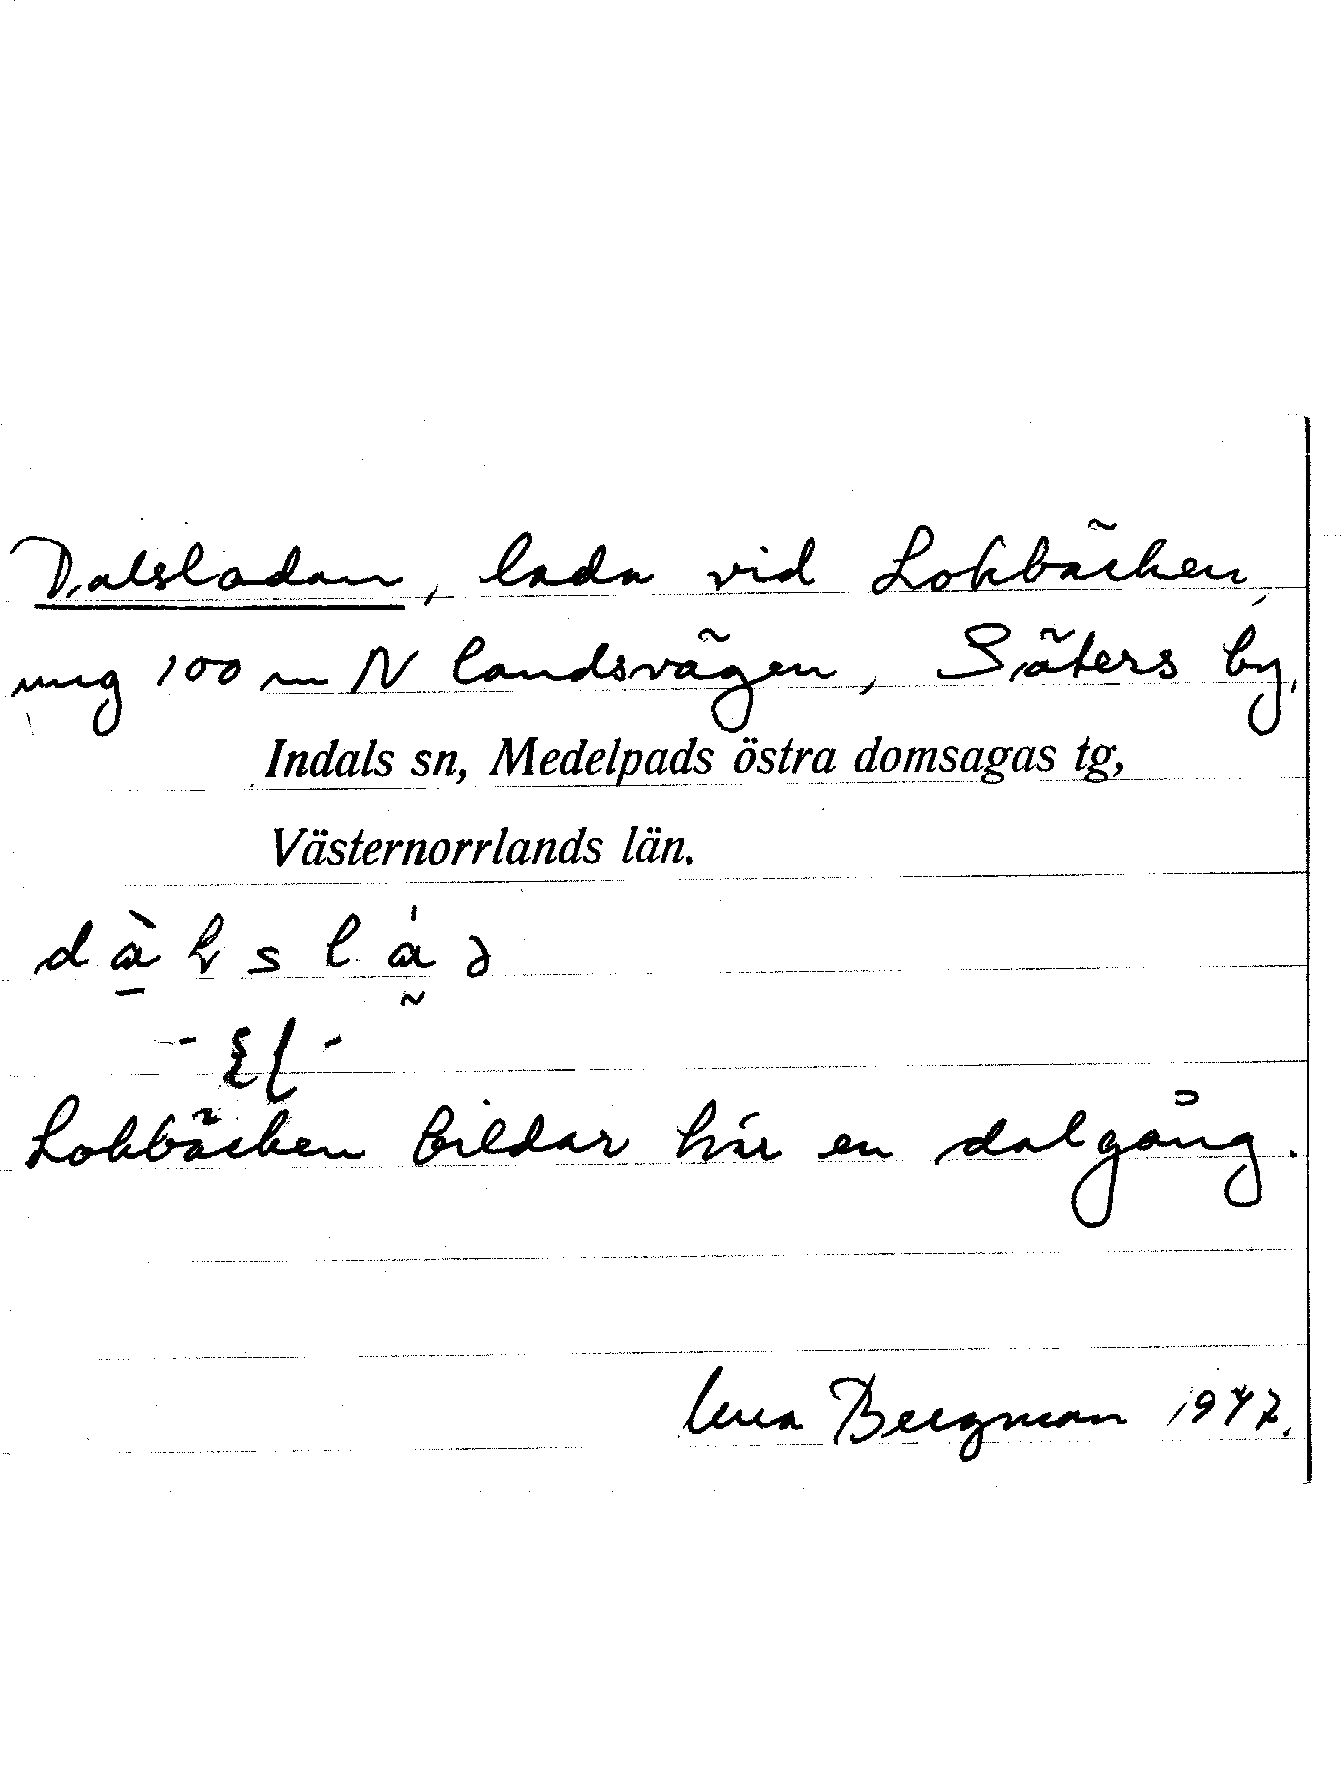 Dalsladan, lada vid Lokbäcken,
ung 100 m N landsvägen, Säters by,
Indals sn, Medelpads östra domsagas tg,
Västernorrlands län.
Lokbäcken bildar här en dalgång.
Bergman 1947.